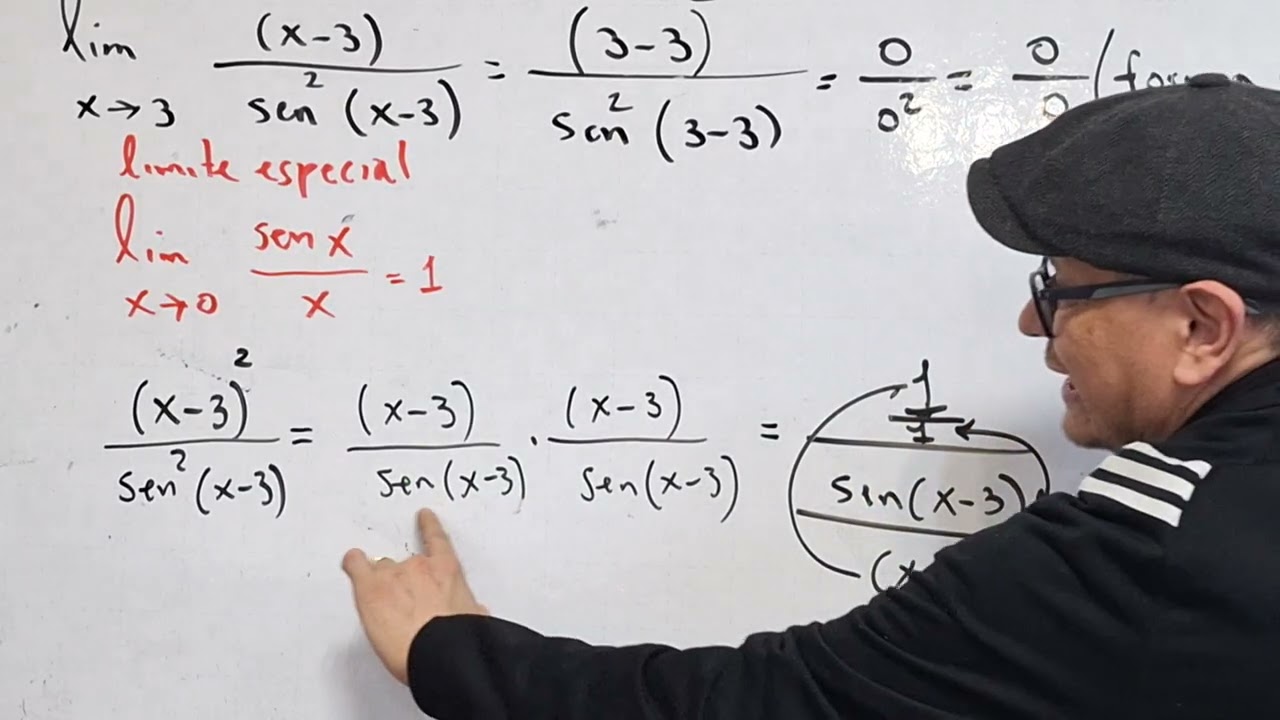 lim x→3 (x-3) / sen² (x-3) = (3-3) / sen² (3-3) = 0 / 0² = 0 / 0 (
limite especial
lim x→0 sen x / x = 1
(x-3)² / sen² (x-3) = (x-3) / sen (x-3) · (x-3) / sen (x-3) = 1 / 1 / sin (x-3) / (x